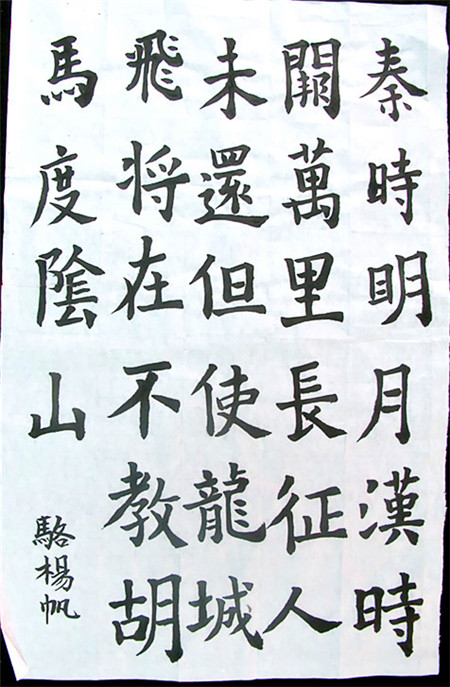 秦時明月漢時
關萬里長征人
未還但使龍城
飛将在不教胡
馬度陰山
駱楊帆